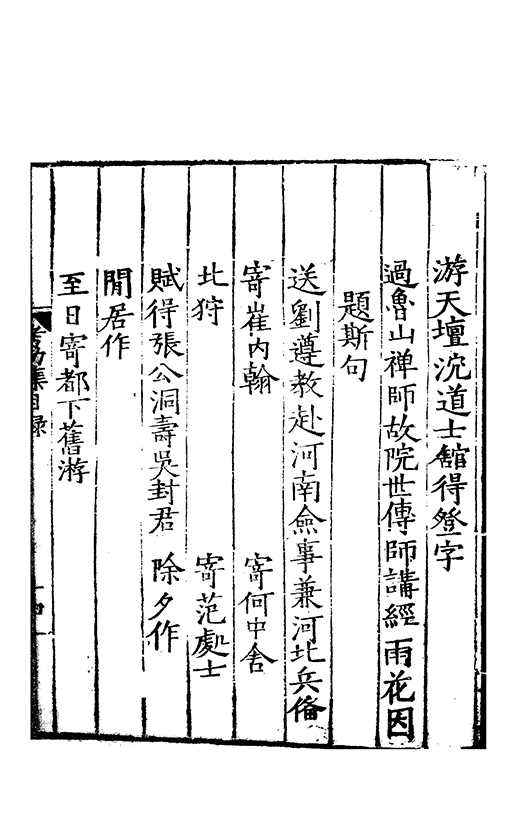 游天壇沈道士館得登字
過魯山禅師故院世傳師講經雨花因
題斯句
送劉遵教赴河南僉事兼河北兵俻
寄崔内翰　寄何中舍
北狩　寄范處士
賦得張公洞壽吳封君　除夕作
閒居作
至日寄都下舊游
集目録
十四